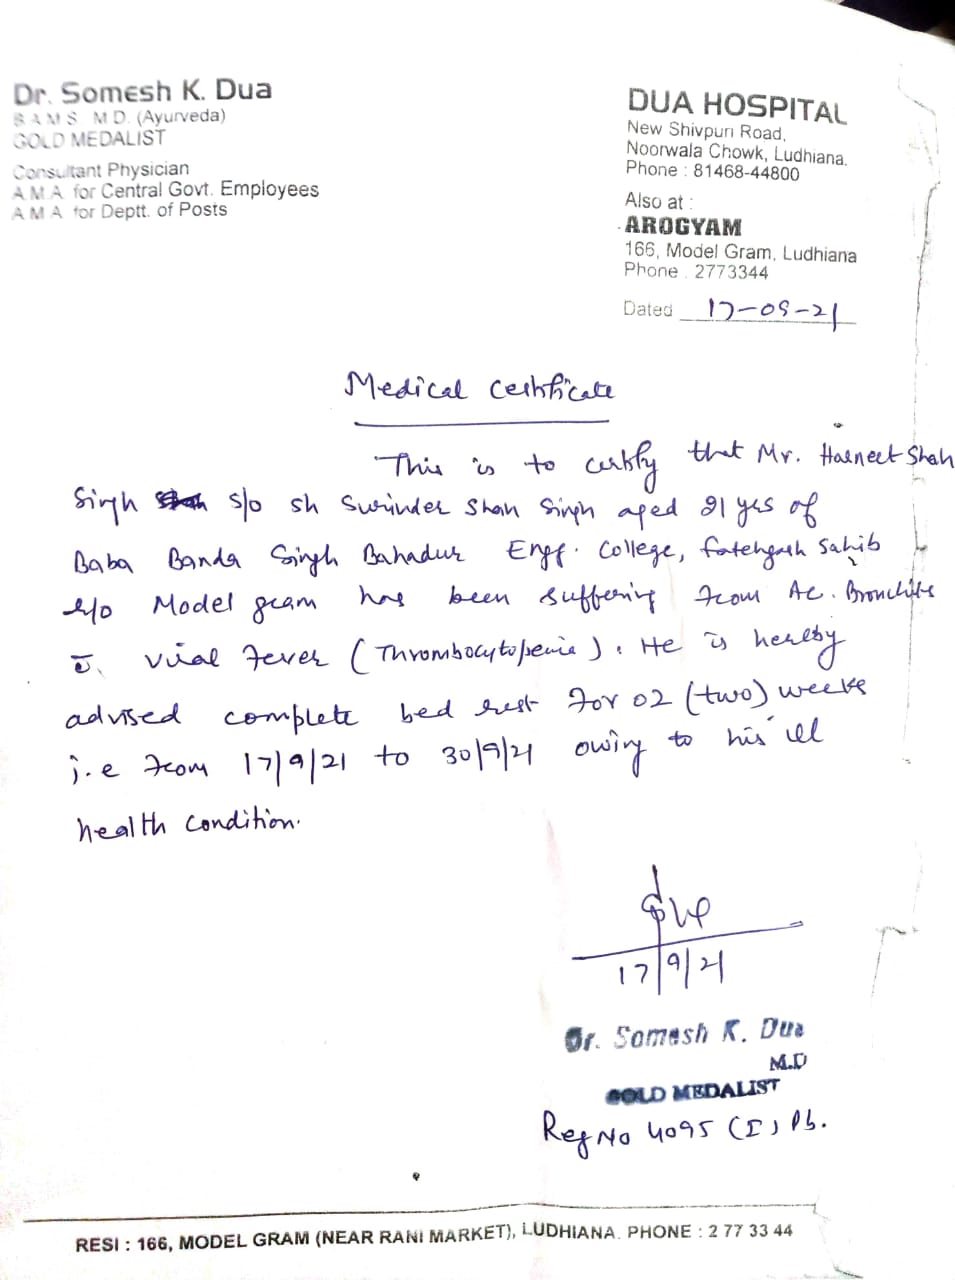 Dr. Somesh K. Dua
B A M S M D. (Ayurveda)
GOLD MEDALIST
Consultant Physician
A M A for Central Govt. Employees
A M A for Deptt. of Posts
DUA HOSPITAL
New Shivpuri Road,
Noorwala Chowk, Ludhiana.
Phone : 81468-44800
Also at :
AROGYAM
166, Model Gram, Ludhiana
Phone . 2773344
Dated 17-09-21
Medical Certificate
This is to certify that Mr. Harneet Shah
Singh s/o sh Surinder Shah Singh aged 21 yrs of
Baba Banda Singh Bahadur Engg. College, Fatehgarh Sahib
r/o Model gram has been suffering from Ac. Bronchitis
c̄ viral Fever (Thrombocytopenia). He is hereby
advised complete bed rest for 02 (two) weeks
i.e from 17/9/21 to 30/9/21 owing to his ill
health condition.
17/9/21
Dr. Somesh K. Dua
M.D
GOLD MEDALIST
Reg No 4095 (I) Pb.
RESI : 166, MODEL GRAM (NEAR RANI MARKET), LUDHIANA. PHONE : 2 77 33 44